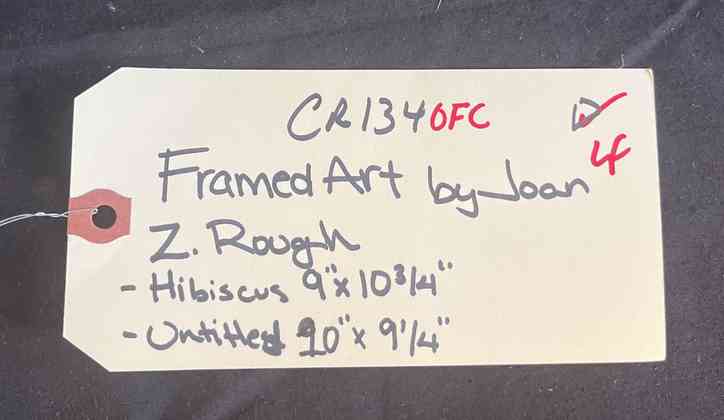 CR1340FC
4
Framed Art by Joan
Z. Rough
- Hibiscus 9"x 10 3/4"
- Untitled 10"x 9 1/4"